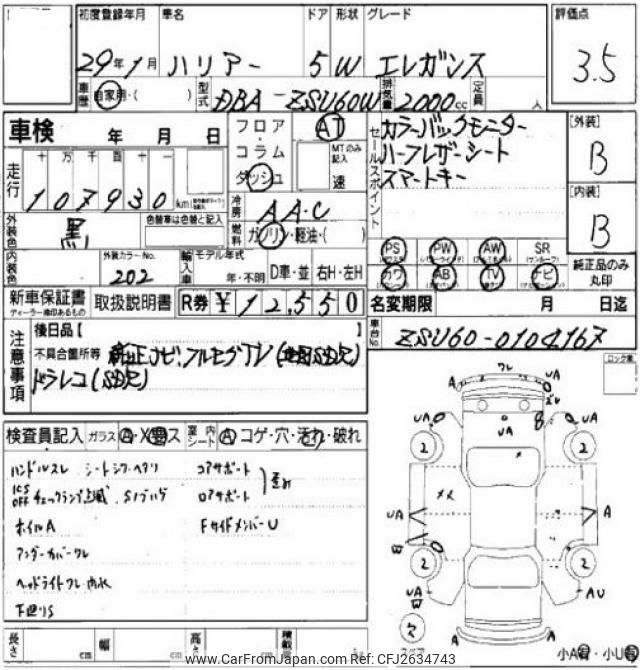 初度登録年月 車名 ドア 形状 グレード 評価点
29年1月 ハリアー 5 W エレガンス 3.5
車歴 自家用・( ) 型式 DBA-ZSU60W 排気量 2000cc 定員 人
車検 年 月 日
フロア・コラム ダッシュ
AT
MTのみ記入 速
セールスポイント
カラーバックモニター
ハーフレザーシート
スマートキー
[外装] B
[内装] B
走行 十万千百十一
107930km
冷房 AA・C
燃料 ガソリン・軽油・( )
外装色 黒
色替車は色替と記入
PS PW AW SR
カワ AB TV ナビ
純正品のみ丸印
内装色
外装カラーNo. 202
輸入車 モデル年式 年・不明 D車・並 右H・左H
新車保証書 取扱説明書 R券 ¥12,550
名変期限 月 日迄
車台No. ZSU60-0104167
注意事項
後日品【 】
不具合箇所等
ドラレコ(SD欠)
検査員記入 ガラス 室内シート コゲ・穴・汚れ・破れ
ハンドルスレ シートシワ・ヘタリ コアサポート
ICS OFF チェックランプ点滅 ロアサポート 歪み
ホイルA FサイドメンバーU
アンダーカバーワレ
ヘッドライトワレ 内水
下廻りS
ロック車
ワレ
A
UA
ズレ
UA
UA
UA
B
2
2
メメ
UA
A
W
2
2
UA
W
AU
A
A
スペア
小A有・小U有
長さ cm 幅 cm 高さ cm 積載量
www.CarFromJapan.com - Ref No: CFJ2634743